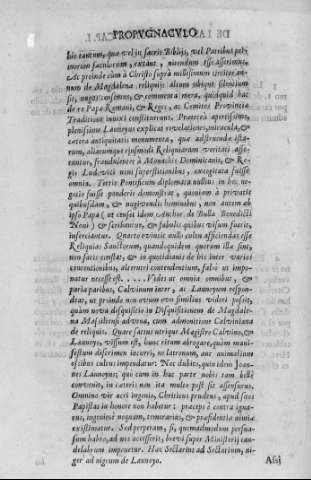 PROPUGNACULO
his tantum, quæ vel in sacris Biblijs, vel Patribus pri-
morum sæculorum, extant, nitendum esse
Ac proinde cùm à Christo supra millesimum circiter an-
num de Magdalenæ reliquijs altum ubique silentium
sit, nugas omnes, & commenta mera, quidquid hac
de re Papæ Romani, & Reges, ac Comites Provinciæ
Traditione innixi constituerunt. Prætereà apertissimè,
plenissimè Launoyus explicat revelationes, miracula, &
cætera antiquitatis monumenta, quæ adstruendæ ista-
rum, aliarumque ejusmodi Reliquiarum veritati asse-
runtur, fraudulenter à Monachis Dominicanis, & Re-
gis Ludovici non superstitionibus, excogitata fuisse
omnia. Tertiò Pontificum diplomata nullius in hoc ne-
gotio fuisse ponderis demonstrat, quoniam à privatis
quibusdam, & nugivendis hominibus, non autem ab
ipso Papa (ut censet idem Author de Bulla Benedicti
Noni) & scribantur, & fabulis quibus visum fuerit,
inferciantur. Quartò evenit nulli cultu afficiendas esse
Reliquias Sanctorum, quandoquidem quorum illæ sint,
non satis constat, & in quotidianis de his inter varios
contentionibus, alterutri contendentium, falsò ut impo-
natur necesse est. .... Videt ut omnia omnibus, &
paria paribus, Calvinum inter, ac Launoyum respon-
deat, ut proinde non ovum ovo similius videri possit,
quàm nova disquisitio in Disquisitionem de Magdale-
na Massiliensi advena, cum admonitione Calviniana
de reliquijs. Quare satius utrique Magistro Calvino, &
Launoyo, visum est, hunc ritum abrogare, quàm mani-
festum discrimen incurri, ne latronum, aut animalium
ossibus cultus impendatur. Nec dubito, quin idem Joan-
nes Launoyus, qui cum in hac parte nobis tam bellè
convenio, in cæteris non ita mulus post sit assensurus.
Omnino vir acri ingenio, Christicus prudens, apud suos
Papistas in honore non habetur: præcipè contra igna-
vus, ingenioque nequam, temerarius, & præsidentiæ nimiæ
existimatur. Sed perperam, si, quemadmodum persua-
sum habeo, ad nos accesserit, brevi super Ministerij can-
delabrum imponetur. Hæc Sectarius ad Sectarium, ni-
ger ad nigrum de Launoyo.
Assj